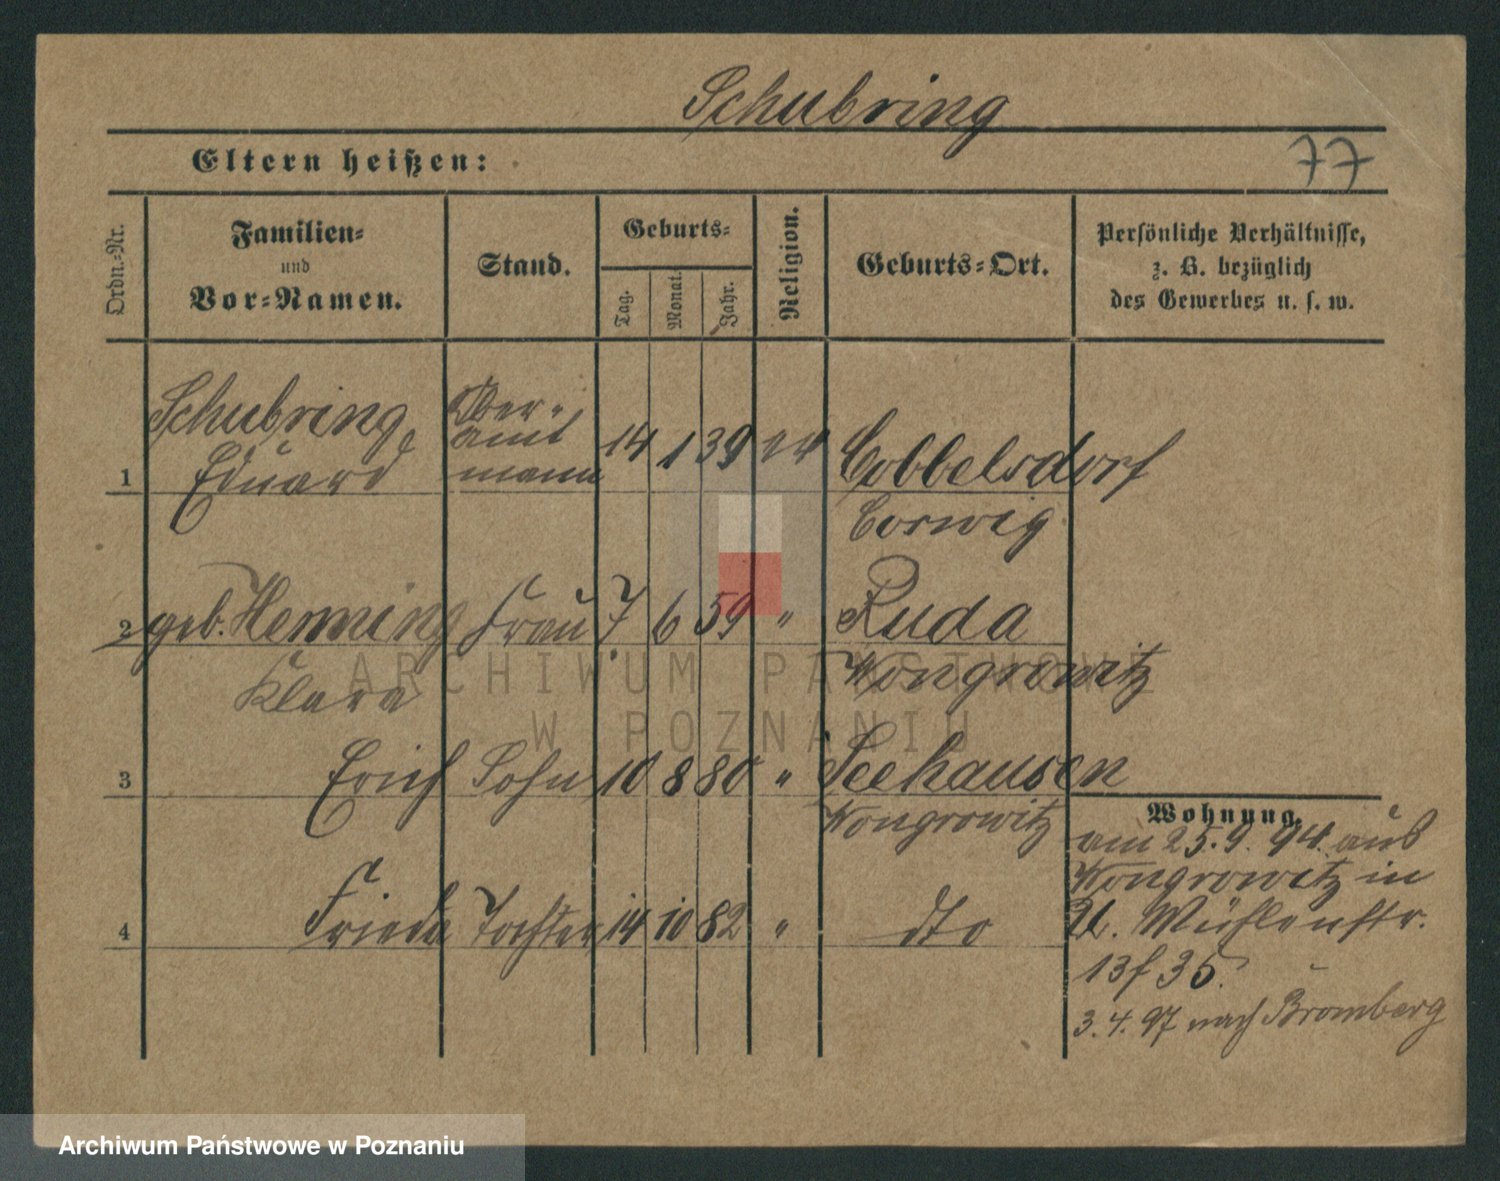 Schubring
Eltern heißen:
77
Ordn.-Nr.
Familien-
und
Vor-Namen.
Stand.
Geburts-
Tag.
Monat.
Jahr.
Religion.
Geburts-Ort.
Persönliche Verhältnisse,
z. B. bezüglich
des Gewerbes u. s. w.
Schubring,
Eduard
Ober-
amt
mann
1 14 1 39 ev Cobbelsdorf
Corwig
2 geb. Henning Frau 7 6 59 " Ruda
Klara
Wongrowitz
3 Erich Sohn 10 8 80 " Seehausen
Wongrowitz
4 Frieda Tochter 14 10 82 " dto
Wohnung.
am 25.9.94. aus
Wongrowitz in
U. Mühlenstr.
13 f 35.
3.4.97 nach Bromberg
ARCHIWUM PAŃSTWOWE
W POZNANIU
Archiwum Państwowe w Poznaniu